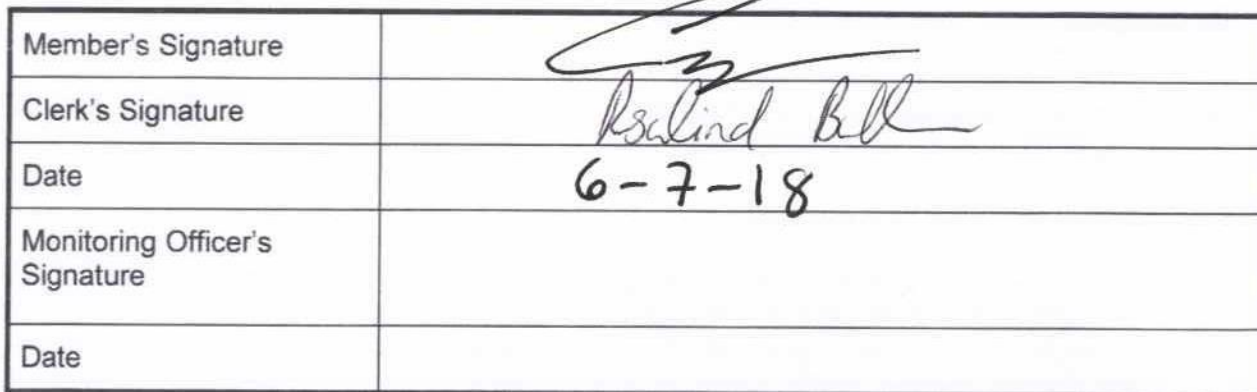 Member's Signature
Clerk's Signature Rosalind
Date 6-7-18
Monitoring Officer's
Signature
Date